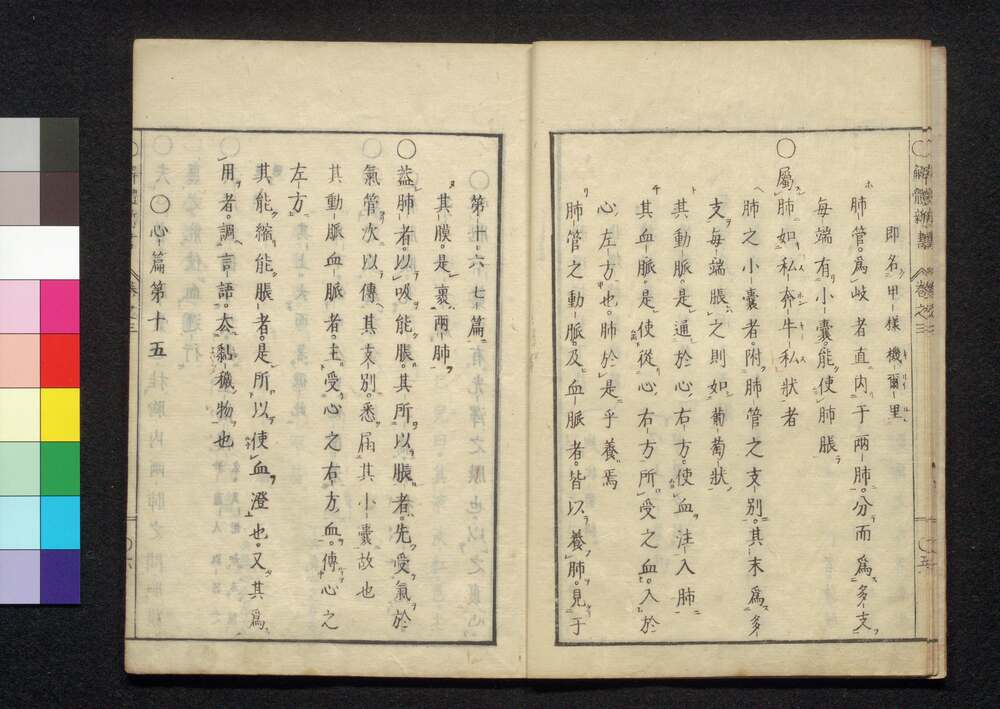 解體新書 卷之三 〇五
即名甲樣機爾里
肺管。爲岐者直内于兩肺。分而爲多支
每端有小囊。能使肺脹
〇屬肺如私奔牛私狀者
肺之小囊者。附肺管之支別。其末爲多
支。每端脹之則如葡萄狀
其動脈。是通於心右方。使血注入肺
其血脈。是使從心右方所受之血。入於
心左方也。肺於是乎養焉
肺管之動脈。及血脈者。皆以養肺。見于
第廿六七篇
其膜。是裹兩肺
〇蓋肺者。以吸能脹。其所以脹者。先受氣於
氣管。次以傳其支別。悉屆其小囊故也
其動脈血脈者。主受心之右方血。傳心之
左方
其能縮能脹者。是所以使血澄也。又其爲
用者。調言語。去黏穢物也
〇心篇第十五
解體新書 卷之三 〇六